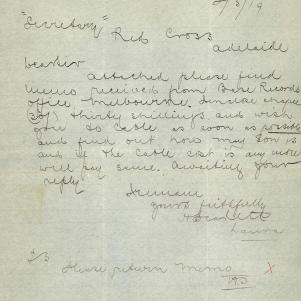 /5/19
"Secretary"
Red Cross
Adelaide
Dear Sir
attached please find
memo received from Base Records
office, Melbourne. Enclose cheque
thirty shillings and wish
you to cable as soon as possible
and find out how my Son is
and if the Cable cost is any more
will pay same. Awaiting your
reply.
I remain
yours faithfully
Laura
Please return Memo